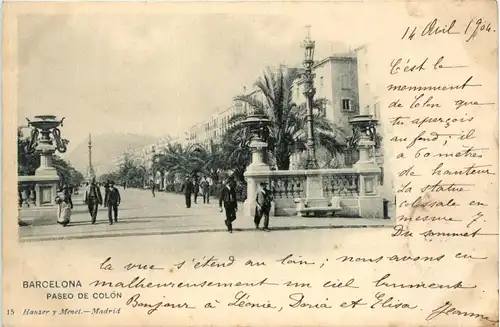 14 Avril 1904.
C'est le
monument
de Colon que
tu aperçois
au fond; il
a 60 mètres
de hauteur
La statue
colossale en
mesure 7
Du sommet
la vue s'étend au loin; nous avons eu
malheureusement un ciel brumeux.
Bonjour à Léonie, Doria et Elisa. Jeanne
BARCELONA
PASEO DE COLÓN
15 Hauser y Menet.—Madrid